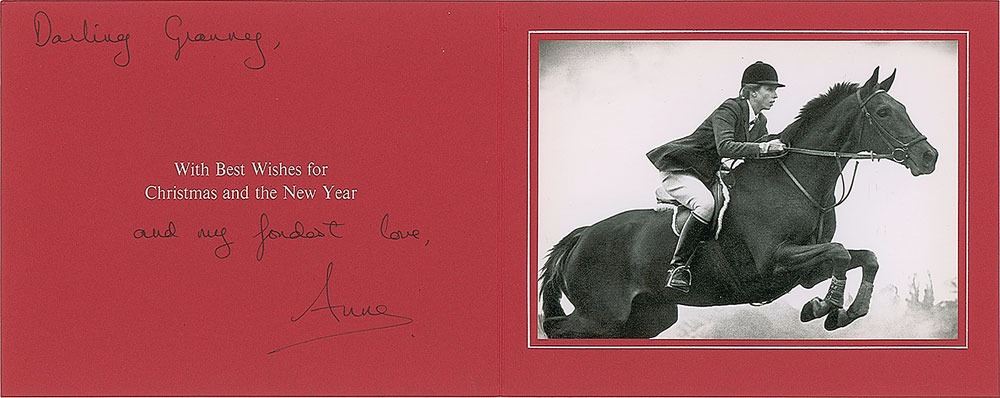 Darling Granny,
With Best Wishes for
Christmas and the New Year
and my fondest love,
Anne